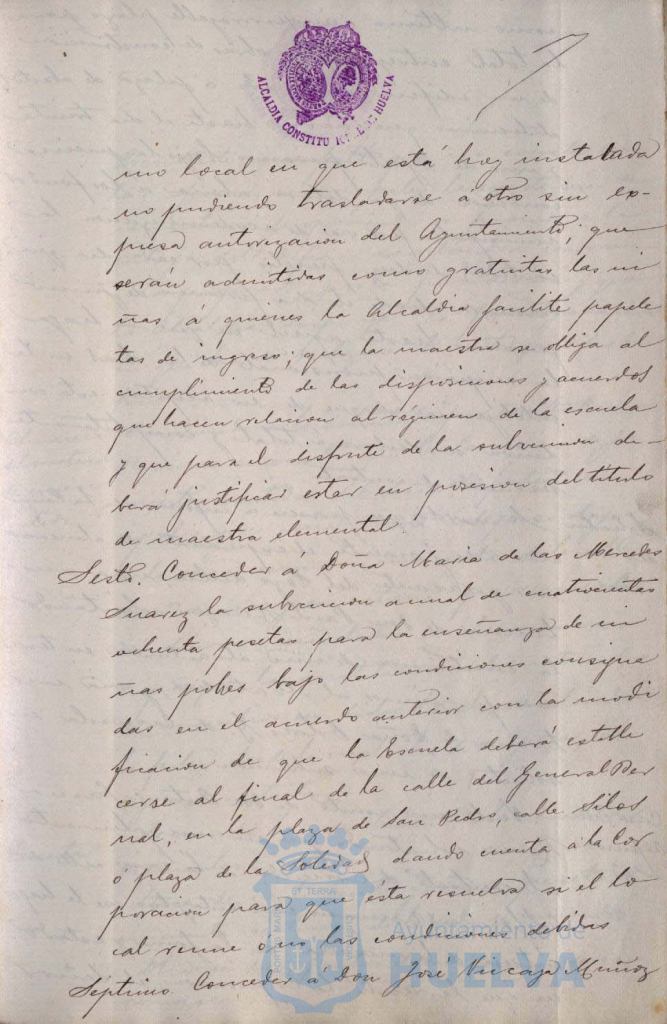 ALCALDIA CONSTITU DE HUELVA
mo local en que está hoy instalada
no pudiendo trasladarse á otro sin ex-
presa autorizacion del Ayuntamiento; que
serán admitidas como gratuitas las ni
ñas á quienes la Alcaldia facilite papele
tas de ingreso; que la maestra se obliga al
cumplimiento de las disposiciones y acuerdos
que hacen relacion al régimen de la escuela
y que para el disfrute de la subvencion de-
berá justificar estar en posesion del titulo
de maestra elemental.
Sesto. Conceder á Doña Maria de las Mercedes
Suarez la subvencion anual de cuatrocientas
ochenta pesetas para la enseñanza de ni
ñas pobres bajo las condiciones consigna
das en el acuerdo anterior con la modi
ficacion de que la Escuela deberá estable
cerse al final de la calle del General Ber
nal, en la plaza de San Pedro, calle Silos
ó plaza de la Soledad dando cuenta á la Cor
poracion para que ésta resuelva si el lo
cal reune ó no las condiciones debidas
Séptimo Conceder á Don José Muñoz
Ayuntamiento de
HUELVA